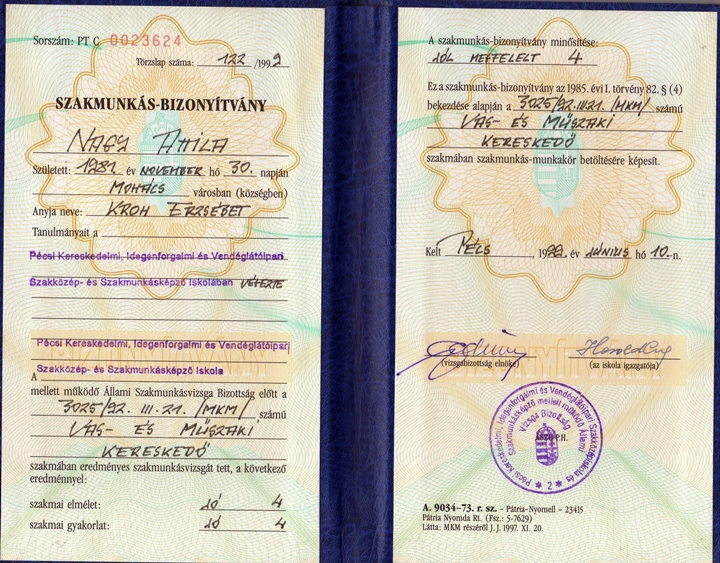 Sorszám: PT C 0023624
Törzslap száma: 122 /1999
SZAKMUNKÁS-BIZONYÍTVÁNY
NAGY Attila
Született: 1981 év NOVEMBER hó 30. napján
MOHÁCS városban (községben)
Anyja neve: KROH ERZSÉBET
Tanulmányait a
Pécsi Kereskedelmi, Idegenforgalmi és Vendéglátóipari
Szakközép- és Szakmunkásképző Iskolában VÉGEZTE
Pécsi Kereskedelmi, Idegenforgalmi és Vendéglátóipari
Szakközép- és Szakmunkásképző Iskola
A
mellett működő Állami Szakmunkásvizsga Bizottság előtt a
3025/92. III. 21. /MKM/ számú
VAS- ÉS MŰSZAKI
KERESKEDŐ
szakmában eredményes szakmunkásvizsgát tett, a következő
eredménnyel:
szakmai elmélet: JÓ 4
szakmai gyakorlat: JÓ 4
A szakmunkás-bizonyítvány minősítése:
JÓL MEGFELELT 4
Ez a szakmunkás-bizonyítvány az 1985. évi I. törvény 82. § (4)
bekezdése alapján a 3025/92. III. 21. /MKM/ számú
VAS- ÉS MŰSZAKI
KERESKEDŐ
szakmában szakmunkás-munkakör betöltésére képesít.
Kelt PÉCS, 1999. év JÚNIUS hó 10-n.
(vizsgabizottság elnöke) (az iskola igazgatója)
Pécsi Kereskedelmi, Idegenforgalmi és Vendéglátóipari Szakközépiskola és
Szakmunkásképző mellett működő Állami
Vizsga Bizottság
ÁSZB P.H.
* 2 *
A. 9034–73. r. sz. - Pátria-Nyomell - 23415
Pátria Nyomda Rt. (Fsz.: 5-7629)
Látta: MKM részéről J. J. 1997. XI. 20.